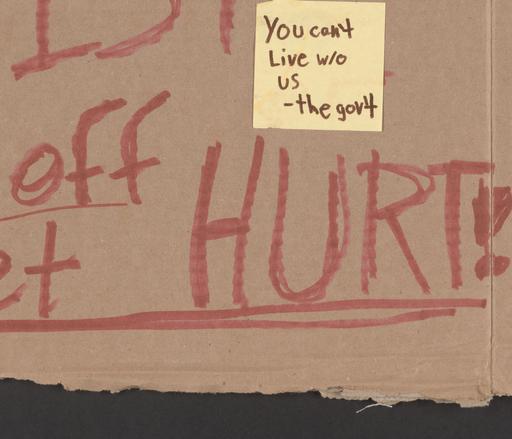 You can't
Live w/o
us
-the gov't
off
HURT!